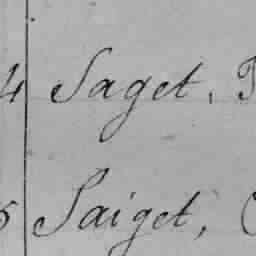 4 Saget,
5 Saiget,